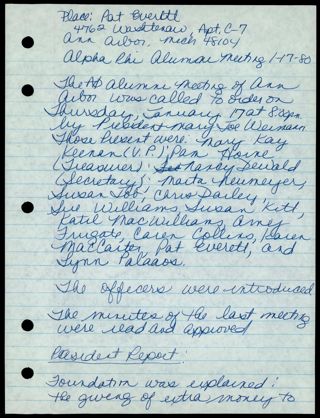 Place: Pat Everett
4762 Washtenaw, Apt. C-7
Ann Arbor, Mich 48104
Alpha Phi Alumnae Meeting 1-17-80
The AΦ Alumni Meeting of Ann
Arbor was called to order on
Thursday, January 17 at 8:00pm
by President Mary Joe Weimann
Those present were: Mary Kay
Keenan (V.P.), Pam Horne
(Treasurer), Nancy Dewald
(Secretary); Marta Neumeyer,
Susan Toft, Chris Dailey,
Sue Williams, Susan Kitt,
Katie MacWilliams, Amy
Frugate, Caren Collins, Karen
MacCarter, Pat Everett, and
Lynn Palaaos.
The officers were introduced
The minutes of the last meeting
were read and approved
President Report:
Foundation was explained:
the giving of extra money to